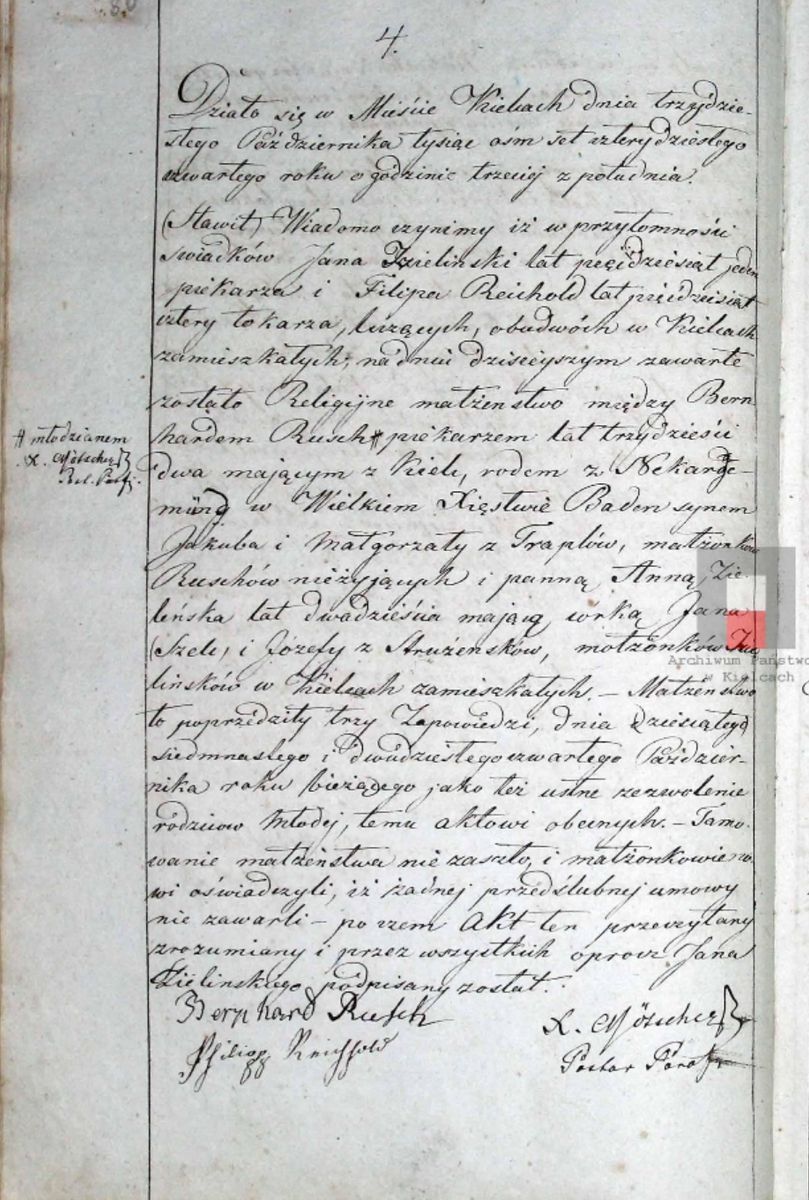 4.
Działo się w Mieście Kielcach dnia trzydzie-
stego Października tysiąc ośm set czterydziestego
czwartego roku o godzinie trzeciej z południa.
(Stawił) Wiadomo czynimy iż w przytomności
świadków Jana Zieliński lat pięćdziesiąt jeden
piekarza i Filipa Reichold lat pięćdziesiąt
cztery tokarza, liczących, obudwóch w Kielcach
zamieszkałych, na dniu dzisiejszym zawarte
zostało Religijne małżenstwo między Bern
hardem Rusch # piekarzem lat trzydzieści
# młodzianem
X. Mötschel
dwa mającym z Kielc, rodem z Nekarge-
münd w Wielkiem Xięstwie Baden synem
Jakuba i Małgorzaty z Traplów, małżonków
Ruschów nieżyjących i panną Anną, Zie-
lińska lat dwadzieścia mającą córką Jana
i Józefy z Strużeńsków, małżonków Zie
lińsków w Kielcach zamieszkałych. – Małżenstwo
to poprzedziły trzy Zapowiedzi, dnia dziesiątego
siedmnastego i dwudziestego czwartego Paździer-
nika roku bieżącego jako też ustne zezwolenie
rodziców Młodej, temu aktowi obecnych. – Tamo-
wanie małżeństwa nie zaszło, i małżonkowie no-
wi oświadczyli, iż żadnej przedślubnej umowy
nie zawarli – po czem Akt ten przeczytany
zrozumiany i przez wszystkich oprócz Jana
Zielinskiego podpisany został.
Bernhard Rusch
X. Mötschel
Philipp Reichhold
Pastor
Archiwum Państwo
w Kielcach